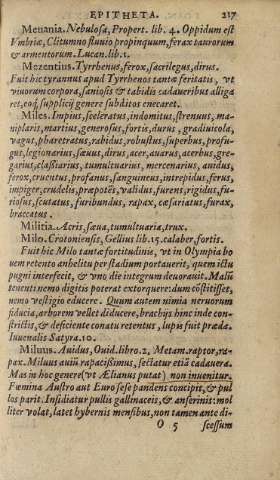 EPITHETA. 217
Meuania. Nebulosa, Propert. lib. 4. Oppidum est
Vmbriæ, Clitumno fluuio propinquum, ferax taurorum
& armentorum. Lucan. lib. 1.
Mezentius. Tyrrhenus, ferox, sacrilegus, dirus.
Fuit hic tyrannus apud Tyrrhenos tantæ feritatis, vt
viuorum corpora, saniosis & tabidis cadaueribus alliga
ret, eoq́; supplicij genere subditos enecaret.
Miles. Impius, sceleratus, indomitus, strenuus, ma-
niplaris, martius, generosus, fortis, durus, gradiuicola,
vagus, pharetratus, rabidus, robustus, superbus, profu-
gus, legionarius, sæuus, dirus, acer, auarus, acerbus, gre-
garius, classiarius, tumultuarius, mercenarius, auidus,
ferox, cruentus, profanus, sanguineus, intrepidus, ferus,
impiger, crudelis, præpotēs, validus, furens, rigidus, fu-
riosus, scutatus, furibundus, rapax, cæsariatus, furax,
braccatus.
Militia. Acris, sæua, tumultuaria, trux.
Milo. Crotoniensis, Gellius lib. 15. calaber, fortis.
Fuit hic Milo tantæ fortitudinis, vt in Olympia bo
uem retento anhelitu per stadium portauerit, quem ictu
pugni interfecit, & vno die integrum deuorauit. Malū
tenenti nemo digitis poterat extorquere: dum cōstitisset,
nemo vestigio educere. Quum autem nimia neruorum
fiducia, arborem vellet diducere, brachijs hinc inde con-
strictis, & deficiente conatu retentus, lupis fuit præda.
Iuuenalis Satyra. 10.
Miluus. Auidus, Ouid. libro. 2. Metam. raptor, ra-
pax. Miluus auiū rapacissimus, sectatur etiā cadauera.
Mas in hoc genere (vt Ælianus putat) non inuenitur.
Fœmina Austro aut Euro sese pandens concipit, & pul
los parit. Insidiatur pullis gallinaceis, & anserinis: mol
liter volat, latet hybernis mensibus, non tamen ante di-
O 5 scessum